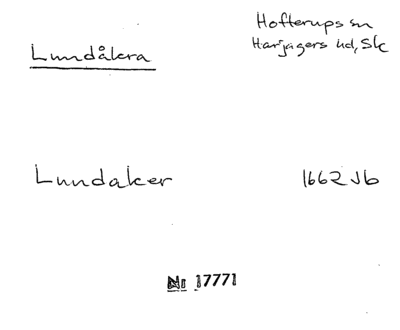 Lundåkra
Hofterups sn
Harjagers hd, Sk
Lundaker
1662 Jb
Nr 17771